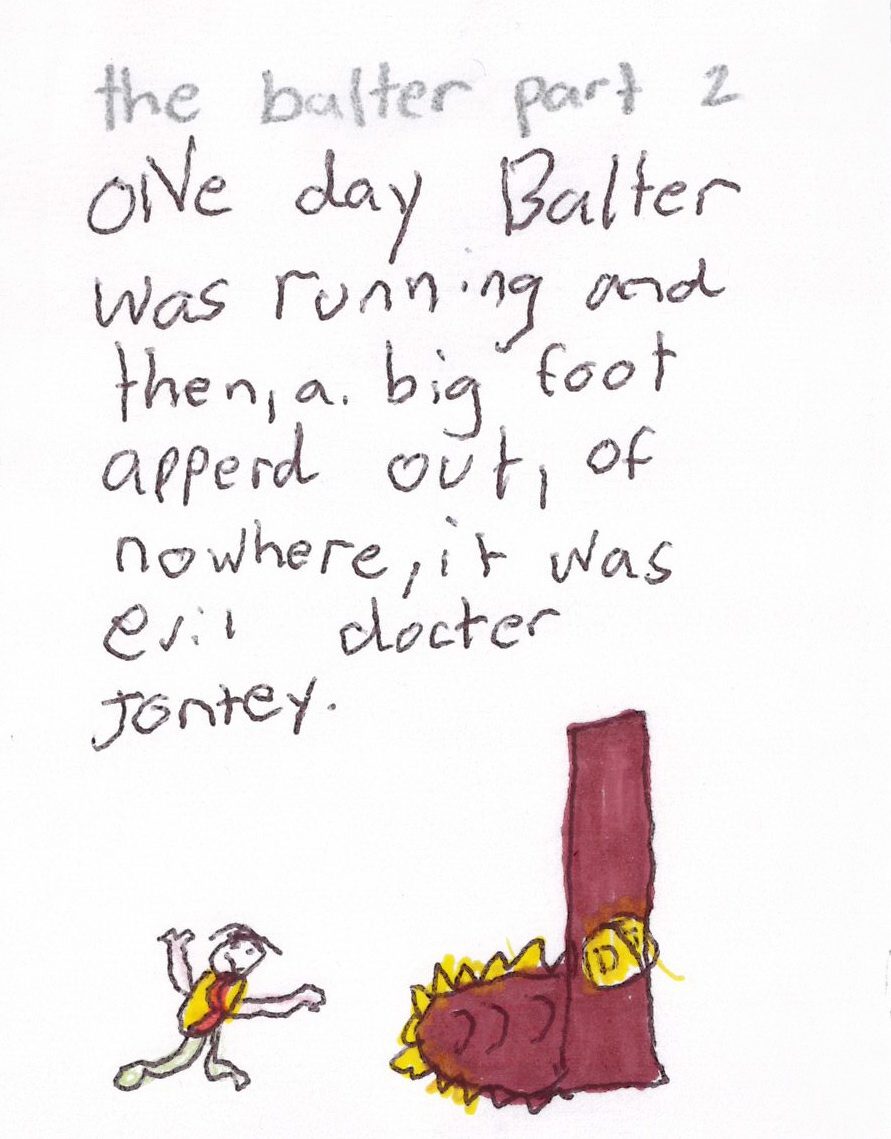 the balter part 2
ONe day Balter
was running and
then, a. big foot
apperd out, of
nowhere, it was
evil docter
Jontey.